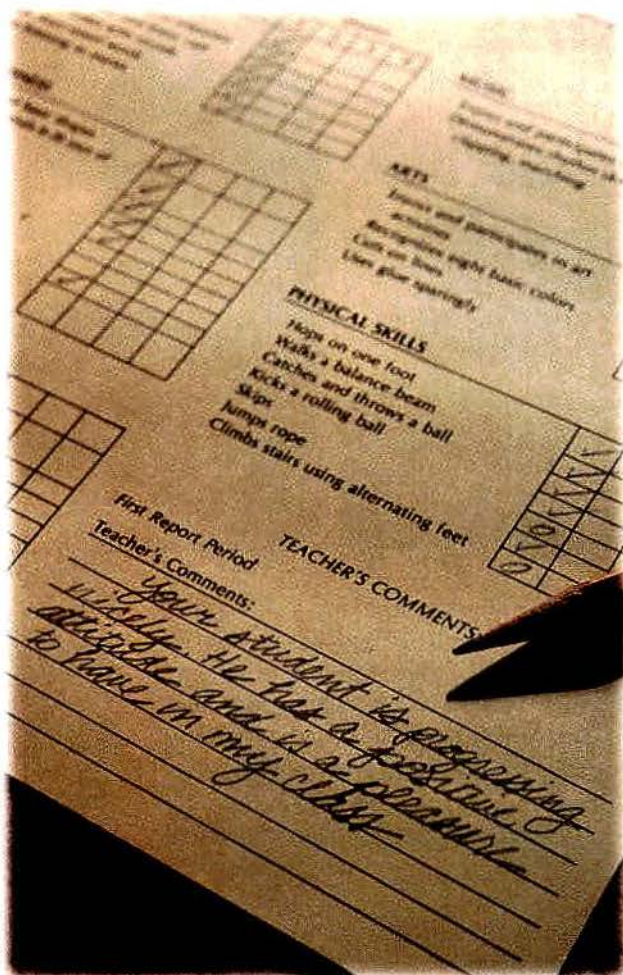 MUSIC
Enjoys and participates
ARTS
Enjoys and participates in art
activities
Recognizes eight basic colors
Cuts on lines
Uses glue sparingly
PHYSICAL SKILLS
Hops on one foot
Walks a balance beam
Catches and throws a ball
Kicks a rolling ball
Skips
Jumps rope
Climbs stairs using alternating feet
TEACHER'S COMMENTS
First Report Period
Teacher's Comments:
Your student is progressing
nicely. He has a positive
attitude and is a pleasure
to have in my class